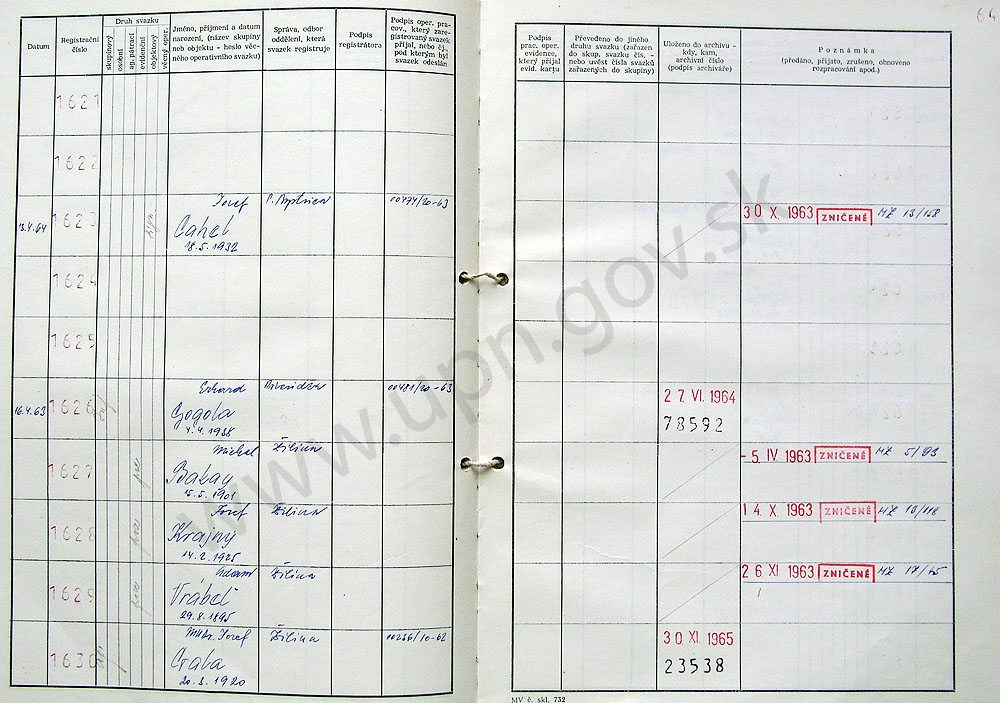 Datum
Registrační číslo
Druh svazku
skupinový
osobní
ag. pátrací
evidenční
objektový
věcný oper.
Jméno, příjmení a datum
narození, (název skupiny
neb objektu - heslo věc-
ného operativního svazku)
Správa, odbor
oddělení, která
svazek registruje
Podpis
registrátora
Podpis oper. pra-
cov., který zare-
gistrovaný svazek
přijal, nebo čj.,
pod kterým byl
svazek odeslán
1621
1622
13.4.64 1623 Jozef 00474/20-63
Cahel
18.5.1932
1624
1625
16.4.63 1626 Erhard 00481/20-63
Gogola
4.4.1938
1627 Michal Žilina
Bakay
15.5.1901
1628 Jozef Žilina
Krajný
14.2.1925
1629 Adam Žilina
Vrábel
29.8.1895
1630 MUDr. Jozef Žilina 00256/10-62
20.3.1920
Podpis
prac. oper.
evidence,
který přijal
evid. kartu
Převedeno do jiného
druhu svazku (zařazen
do skup. svazku čís. -
nebo uvést čísla svazků
zařazených do skupiny)
Uloženo do archivu -
kdy, kam,
archivní číslo
(podpis archiváře)
Poznámka
(předáno, přijato, zrušeno, obnoveno
rozpracování apod.)
30 X. 1963 ZNIČENÉ MZ 13/158
27. VI. 1964
78592
- 5. IV. 1963 ZNIČENÉ MZ 5/93
14 X. 1963 ZNIČENÉ MZ 13/118
26 XI. 1963 ZNIČENÉ MZ 17/45
30 XI. 1965
23538
MV č. skl. 732
www.upn.gov.sk